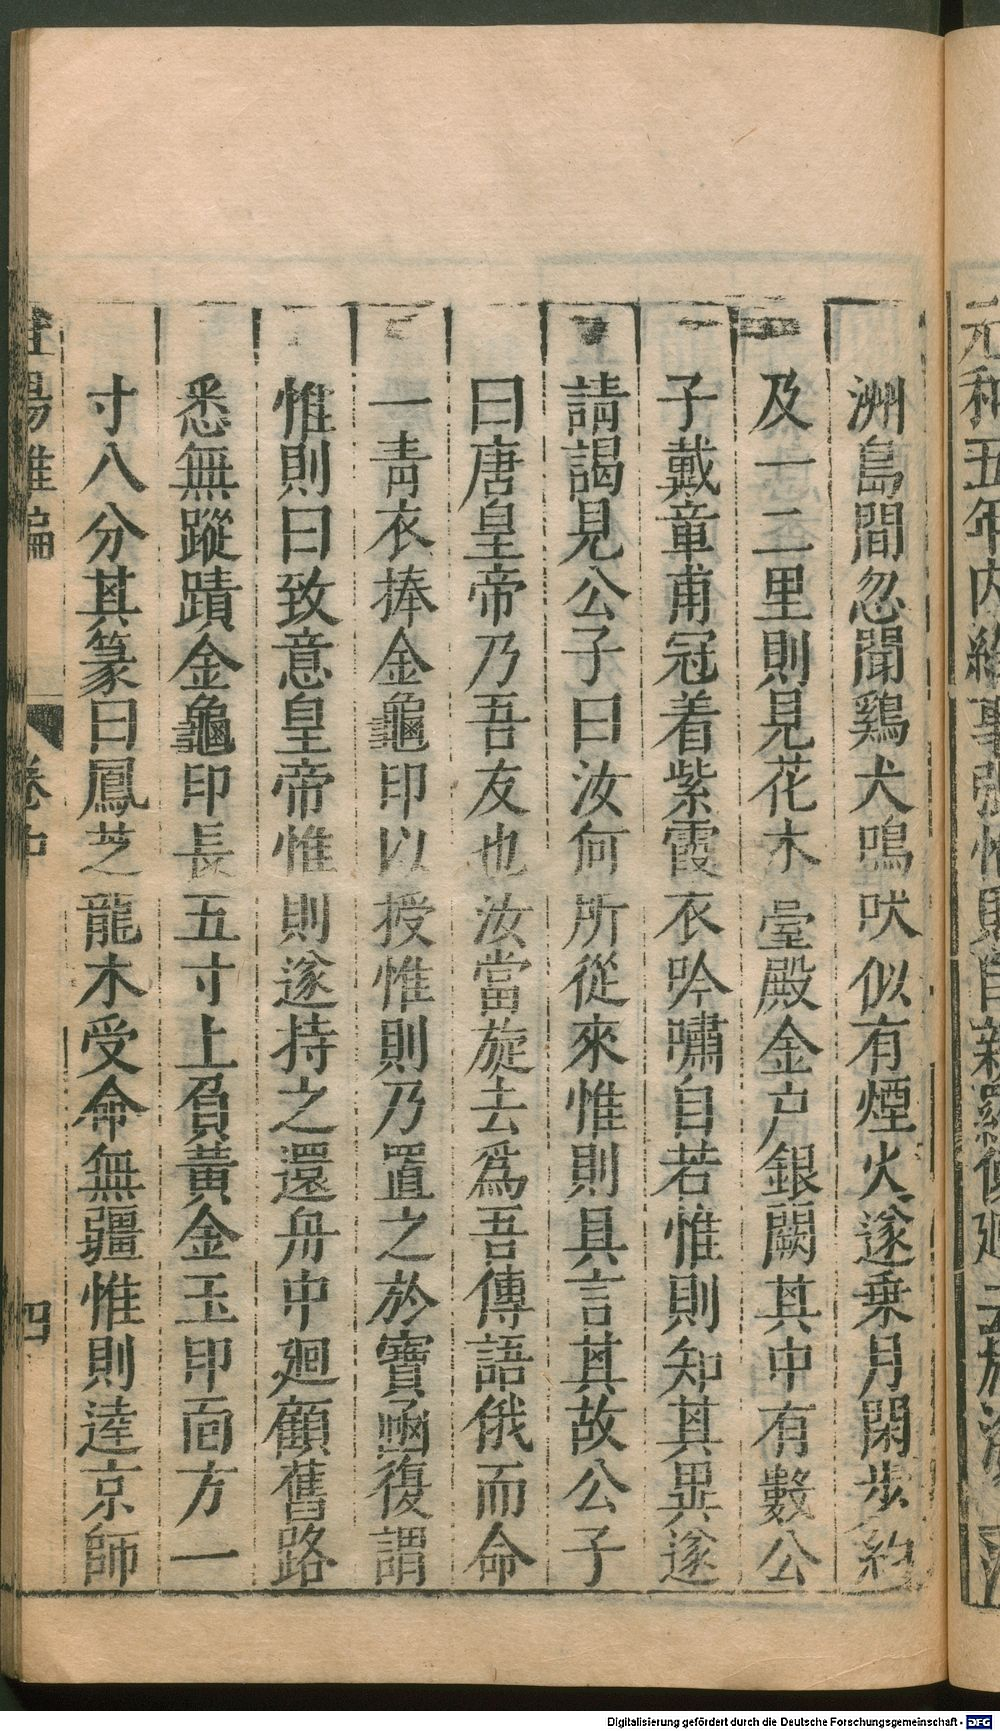 元和五年內給事張惟則自新羅使廻云於海
洲島間忽聞鷄犬鳴吠似有煙火遂乗月閑歩約
及一二里則見花木臺殿金户銀闕其中有數公
子戴章甫冠着紫霞衣吟嘯自若惟則知其異遂
請謁見公子曰汝何所從來惟則具言其故公子
曰唐皇帝乃吾友也汝當旋去爲吾傳語俄而命
一青衣捧金龜印以授惟則乃置之於寶凾復謂
惟則曰致意皇帝惟則遂持之還舟中廻顧舊路
悉無蹤蹟金龜印長五寸上負黃金玉印面方一
寸八分其篆曰鳳芝龍木受命無疆惟則達京師
杜陽雜編
卷中
四
Digitalisierung gefördert durch die Deutsche Forschungsgemeinschaft - DFG